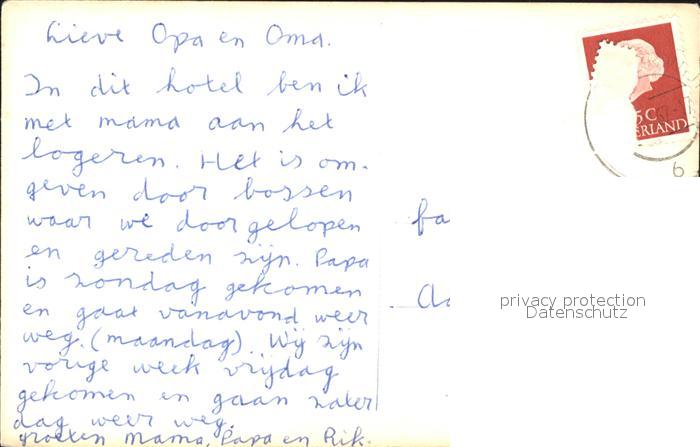 Lieve Opa en Oma.
In dit hotel ben ik
met mama aan het
logeren. Het is om-
geven door bossen
waar we door gelopen
en gereden zijn. Papa
is zondag gekomen
en gaat vanavond weer
weg. (maandag). Wij zijn
vorige week vrijdag
gekomen en gaan zater
dag weer weg.
groeten Mama, Papa en Rik.
5C
ERLAND
6
fa
privacy protection
Datenschutz